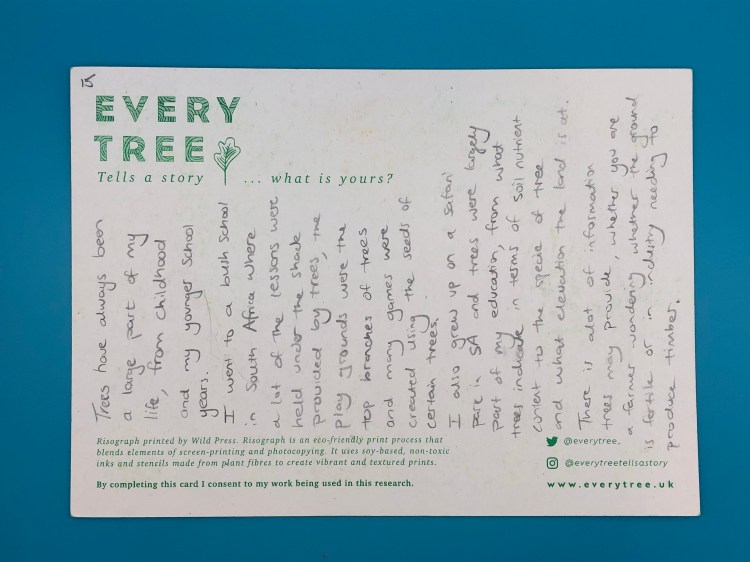 EVERY
TREE
Tells a story ... what is yours?
Trees have always been
a large part of my
life, from childhood
and my younger school
years.
I went to a bush school
in South Africa where
a lot of the lessons were
held under the shade
provided by trees, the
play grounds were the
top branches of trees
and many games were
created using the seeds of
certain trees.
I also grew up on a safari
park in SA and trees were largely
part of my education, from what
trees indicate in terms of soil nutrient
content to the specie of tree
and what elevation the land is at.
There is alot of information
trees may provide, whether you are
a farmer wondering whether the ground
is fertile or in industry needing to
produce timber.
Risograph printed by Wild Press. Risograph is an eco-friendly print process that
blends elements of screen-printing and photocopying. It uses soy-based, non-toxic
inks and stencils made from plant fibres to create vibrant and textured prints.
By completing this card I consent to my work being used in this research.
@everytree_
@everytreetellsastory
www.everytree.uk